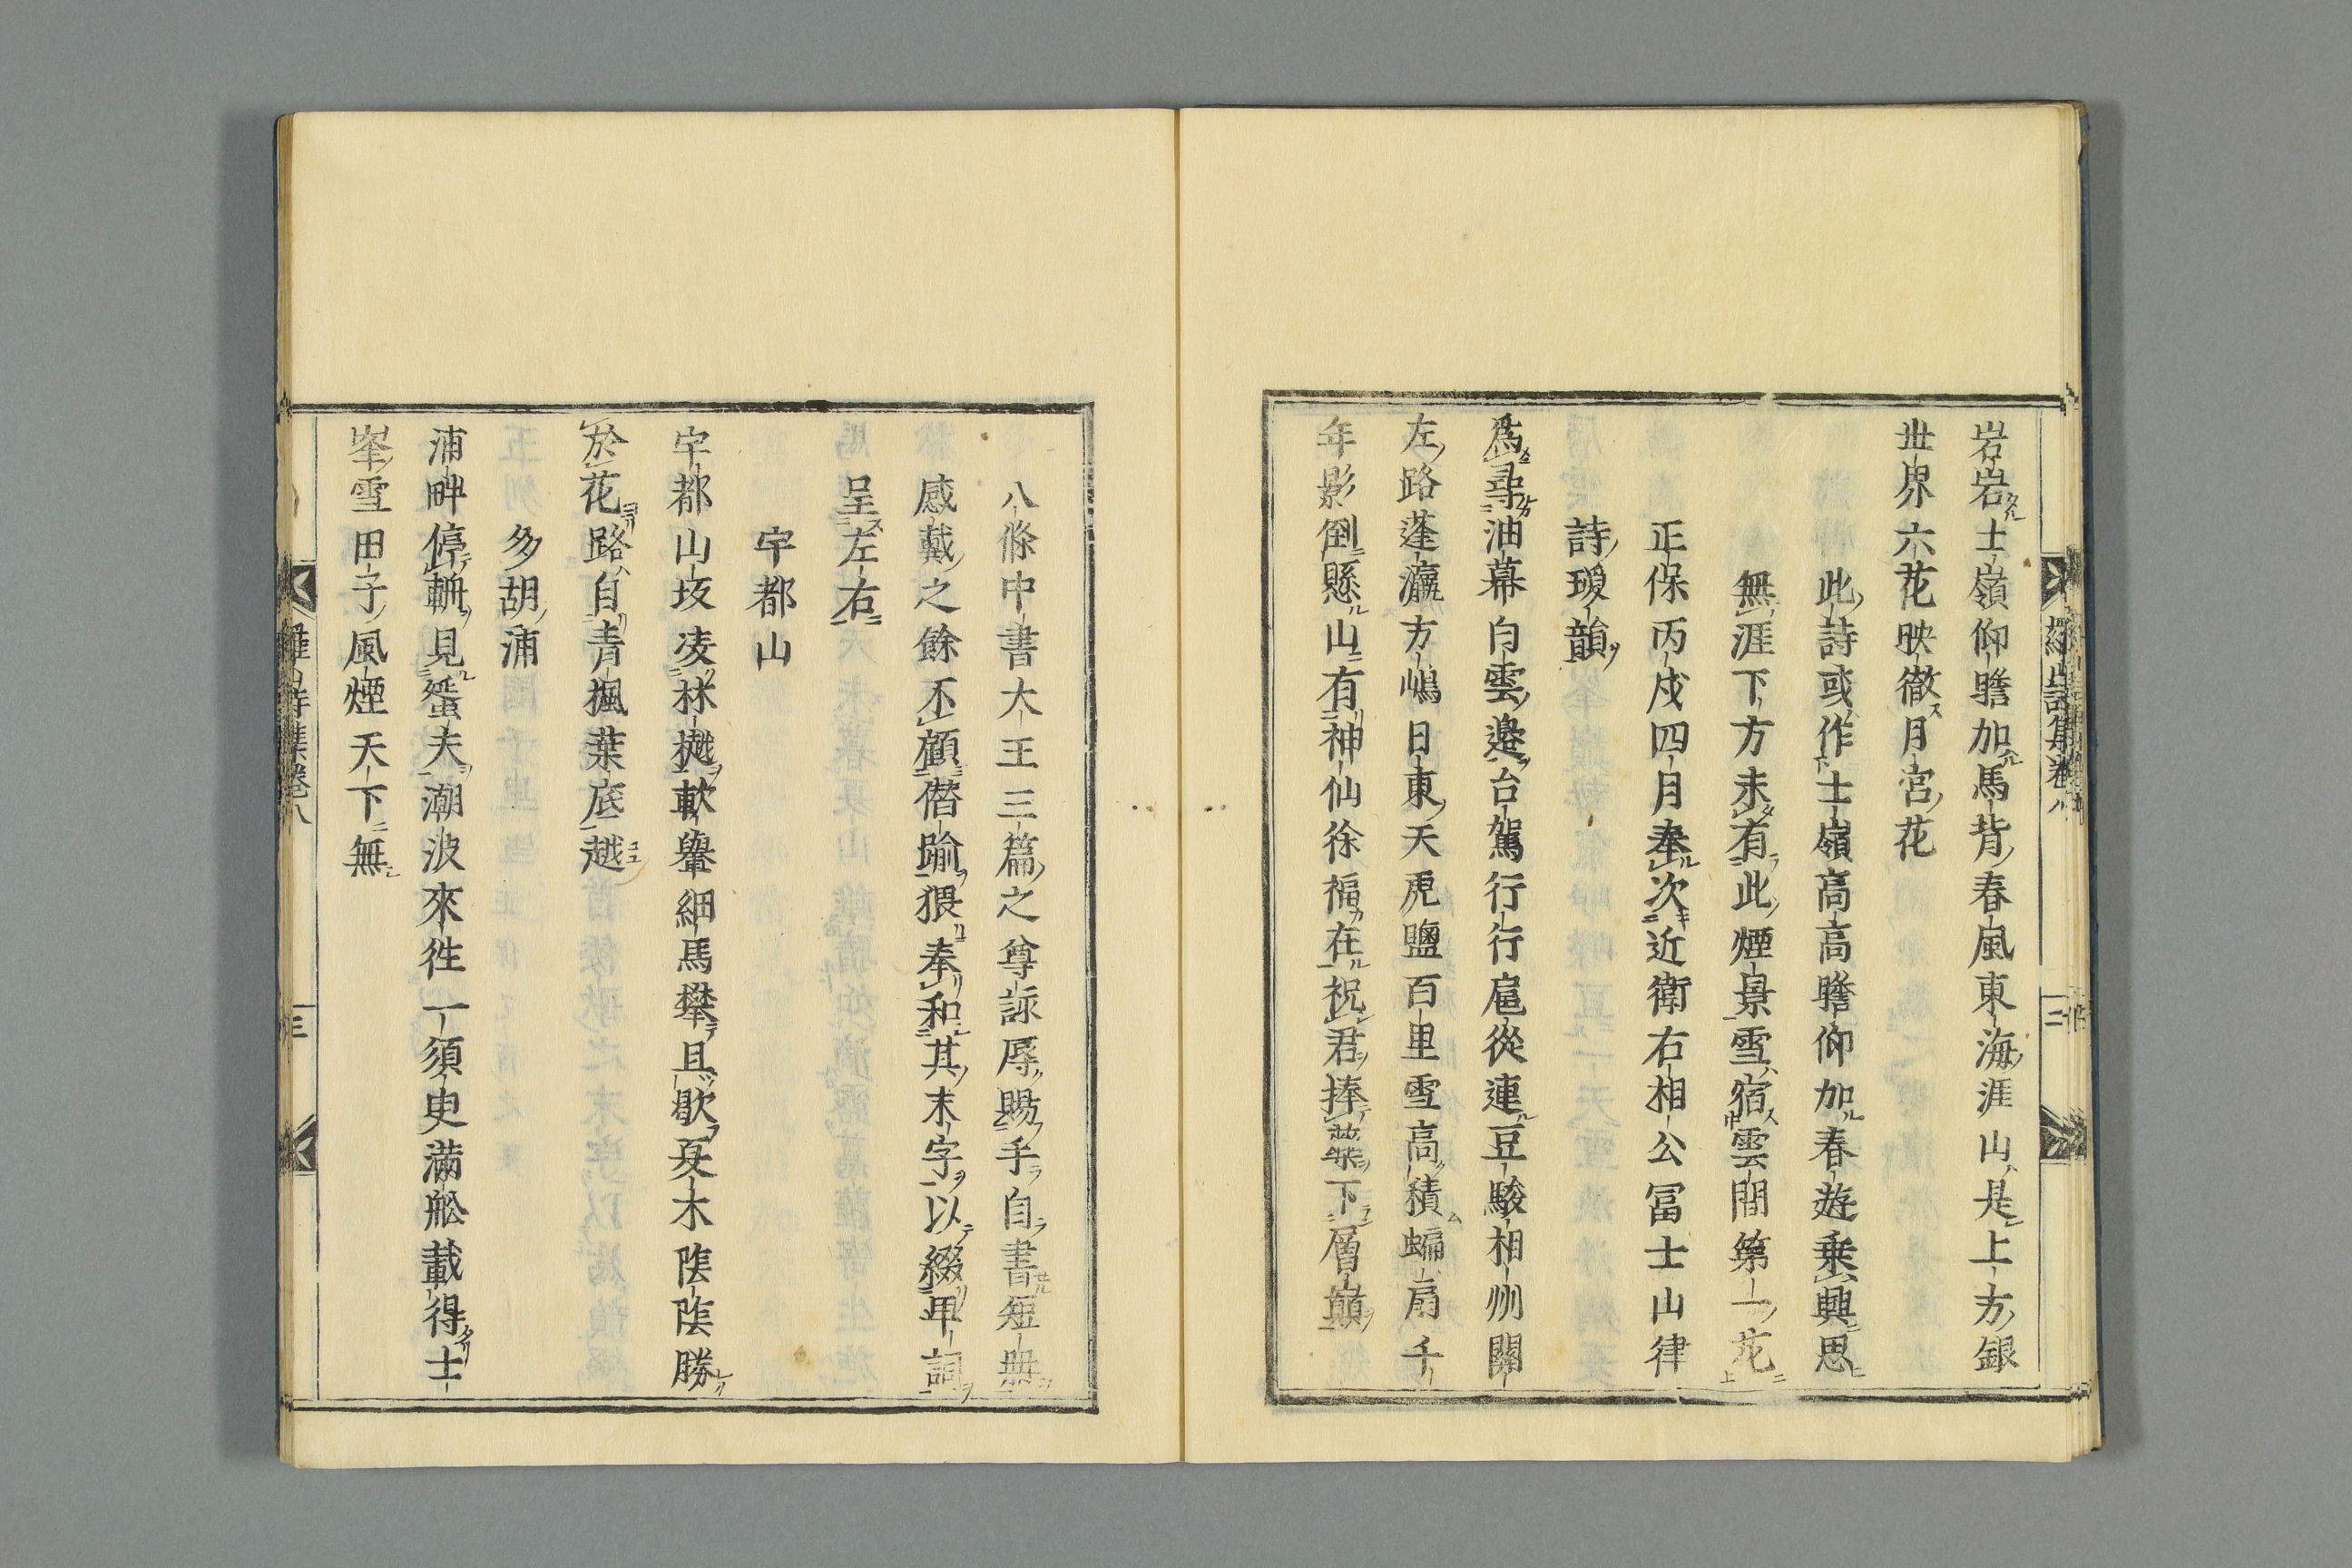 岩岩士嶺仰瞻加馬背春風東海涯山是上方銀
世界六花映徹月宮花
此詩或作士嶺高高瞻仰加春遊乘興思
無涯下方未有此煙景雪宿雲間第一花
正保丙戌四月奉次近衛右相公冨士山律
詩瑷韻
爲尋油幕白雲邊台駕行行扈從連豆駿相州關
左路蓬瀛方嶋日東天虎鹽百里雪高積蝙扇千
年影倒懸山有神仙徐福在祝君捧藥下層巓
羅山詩集卷八
二
八條中書大王三篇之尊詠辱賜手自書短册
感戴之餘不顧僭踰猥奉和其末字以綴卑詞
呈左右
宇都山
宇都山坂凌林樾軟轝細馬攀且歇夏木陰陰勝
於花路自青楓葉底越
多胡浦
浦畔停輧見蜑夫潮波來往一須臾滿舩載得士
峯雪田子風煙天下無
羅山詩集卷八
三